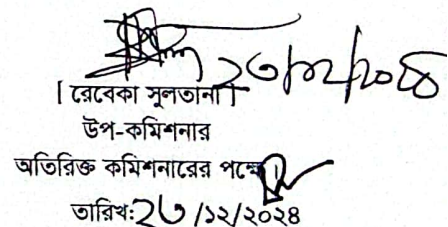 ২৩/১২/২০২৪
[ রেবেকা সুলতানা ]
উপ-কমিশনার
অতিরিক্ত কমিশনারের পক্ষে
তারিখ:২৩/১২/২০২৪